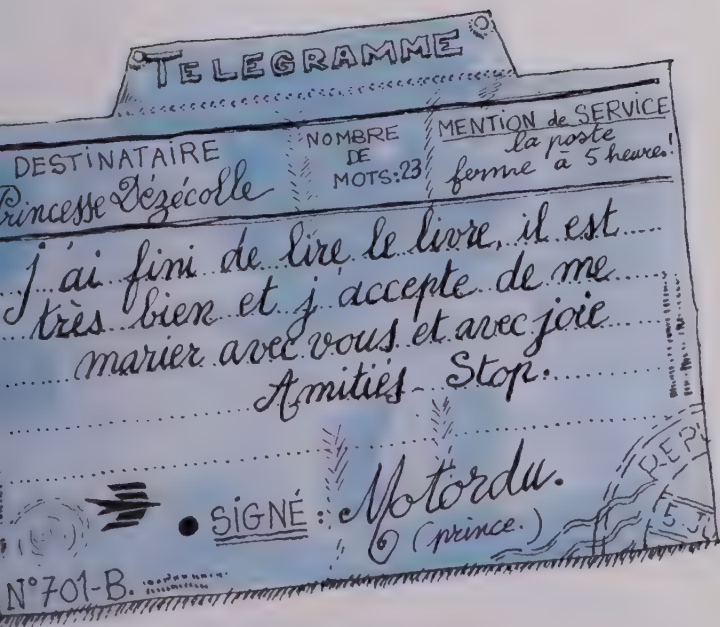 TELEGRAMME
DESTINATAIRE
Princesse Dézécolle
NOMBRE
DE
MOTS:23
MENTION de SERVICE
la poste
ferme à 5 heures!
j'ai fini de lire le livre, il est
très bien et j'accepte de me
marier avec vous et avec joie
Amitiés - Stop.
SIGNÉ : Motordu.
(prince.)
N°701-B.